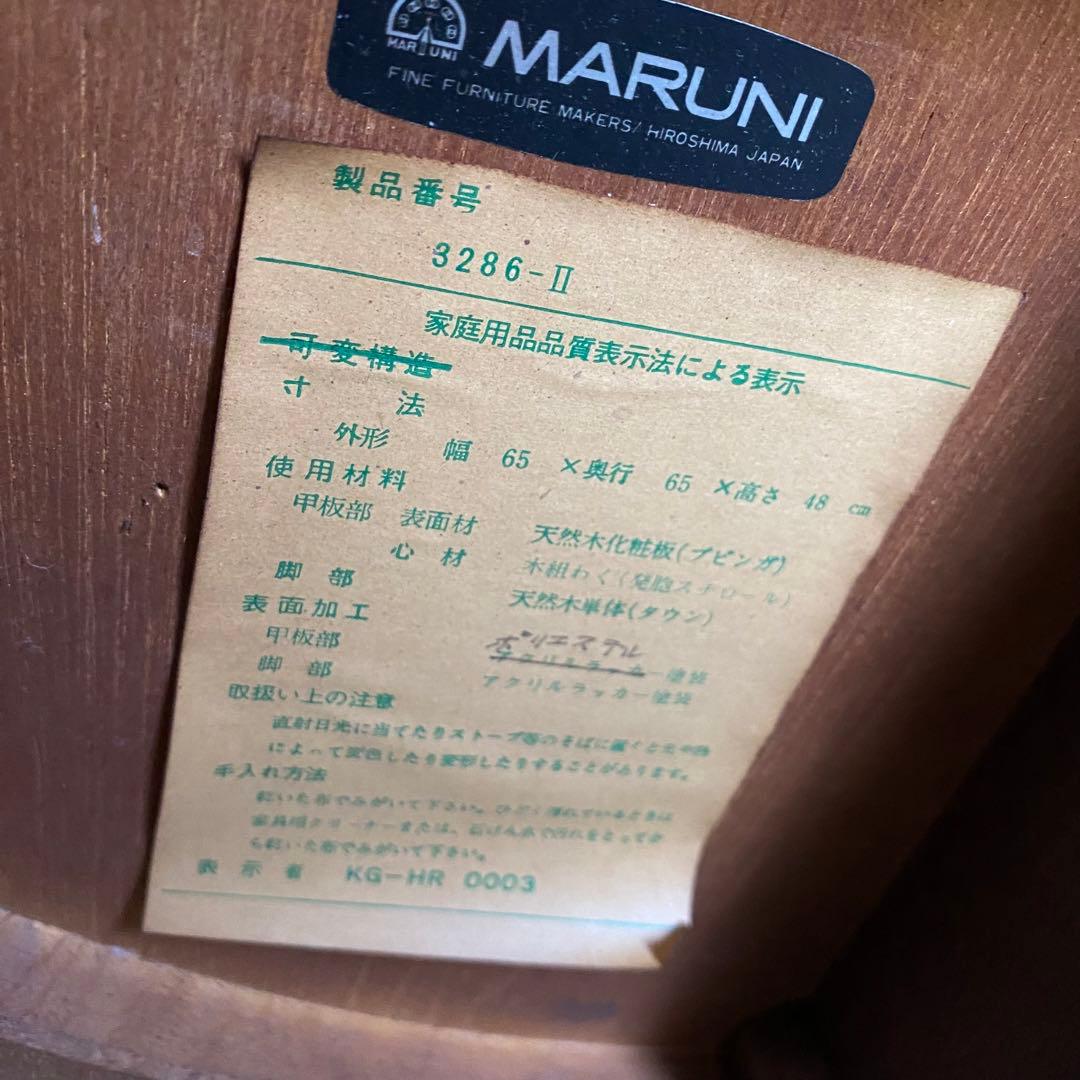 MARUNI
MARUNI
FINE FURNITURE MAKERS/HIROSHIMA JAPAN
製品番号
3286-II
家庭用品品質表示法による表示
可変構造
寸法
外形 幅 65 ×奥行 65 ×高さ 48 cm
使用材料
甲板部 表面材 天然木化粧板(ブビンガ)
心材 木組わく(発泡スチロール)
脚部 天然木単体(タウン)
表面加工
ポリエステル
甲板部 アクリルラッカー塗装
脚部 アクリルラッカー塗装
取扱い上の注意
直射日光に当てたりストーブ等のそばに置くと
によって変色したり変形したりすることがあります。
手入れ方法
乾いた布でみがいて下さい。ひどく汚れているときは
家具用クリーナーまたは、石けん水で汚れをとってか
ら乾いた布でみがいて下さい。
表示者 KG-HR 0003